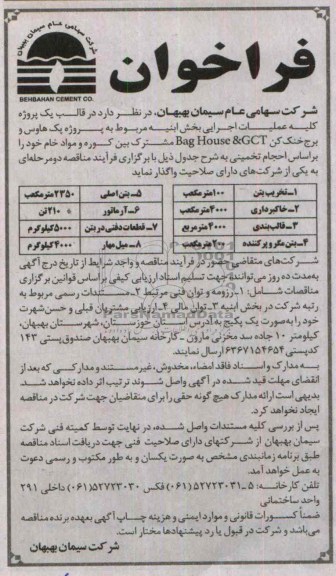 شرکت سهامی عام سیمان بهبهان
BEHBAHAN CEMENT CO.
فراخوان
شرکت سهامی عام سیمان بهبهان، در نظر دارد در قالب یک پروژه
کلیه عملیات اجرایی بخش ابنیه مربوط به پروژه بک هاوس و
برج خنک کن Bag House &GCT مشترک بین کوره و مواد خام خود را
براساس احجام تخمینی به شرح جدول ذیل با برگزاری فرآیند مناقصه دومرحله‌ای
به یکی از شرکت‌های دارای صلاحیت واگذار نماید
۱- تخریب بتن ۱۰۰مترمکعب ۵- بتن اصلی ۲۳۵۰مترمکعب
۲- خاکبرداری ۴۰۰۰مترمکعب ۶- آرماتور ۲۱۰تن
۳- قالب‌بندی ۴۰۰۰مترمربع ۷- قطعات دفنی در بتن ۵۰۰۰کیلوگرم
۴- بتن مگر و پرکننده ۲۰۰مترمکعب ۸- میل مهار ۴۰۰۰کیلوگرم
شرکت‌های متقاضی حضور در فرآیند مناقصه و واجد شرایط از تاریخ درج آگهی
به‌مدت ده روز می‌توانند جهت تسلیم اسناد ارزیابی کیفی براساس قوانین برگزاری
مناقصات شامل: ۱- رزومه و توان فنی مرتبط ۲- مستندات رسمی مربوط به
رتبه شرکت در بخش ابنیه ۳- توان مالی ۴- ارزیابی مشتریان قبلی و حسن شهرت
خود را به‌صورت یک پکیج به آدرس استان خوزستان، شهرستان بهبهان،
کیلومتر ۱۰ جاده سد مخزنی مارون - کارخانه سیمان بهبهان صندوق پستی ۱۴۳
کدپستی ۶۳۶۷۱۵۴۶۵۴ ارسال نمایند.
به مدارک و اسناد فاقد امضاء، مخدوش، غیرمستند و مدارکی که بعد از
انقضای مهلت قید شده در آگهی واصل شوند ترتیب اثر داده نخواهد شد.
بدیهی است ارائه مدارک هیچ گونه حقی را برای متقاضیان جهت شرکت در مناقصه
ایجاد نخواهد کرد.
پس از بررسی کلیه مستندات واصل شده، در نهایت توسط کمیته فنی شرکت
سیمان بهبهان از شرکتهای دارای صلاحیت فنی جهت دریافت اسناد مناقصه
طبق برنامه زمانبندی مشخص به صورت یکسان و به طور مکتوب و رسمی دعوت
به عمل خواهد آمد.
تلفن کارخانه: ۵-۵۲۷۲۳۰۳۱ (۰۶۱) فکس ۵۲۷۲۳۰۳۰ (۰۶۱) داخلی ۲۹۱
واحد ساختمانی
ضمناً کسورات قانونی و موارد ایمنی و هزینه چاپ آگهی بعهده برنده مناقصه
می‌باشد و شرکت در قبول یا رد پیشنهادها مختار است.
شرکت سیمان بهبهان